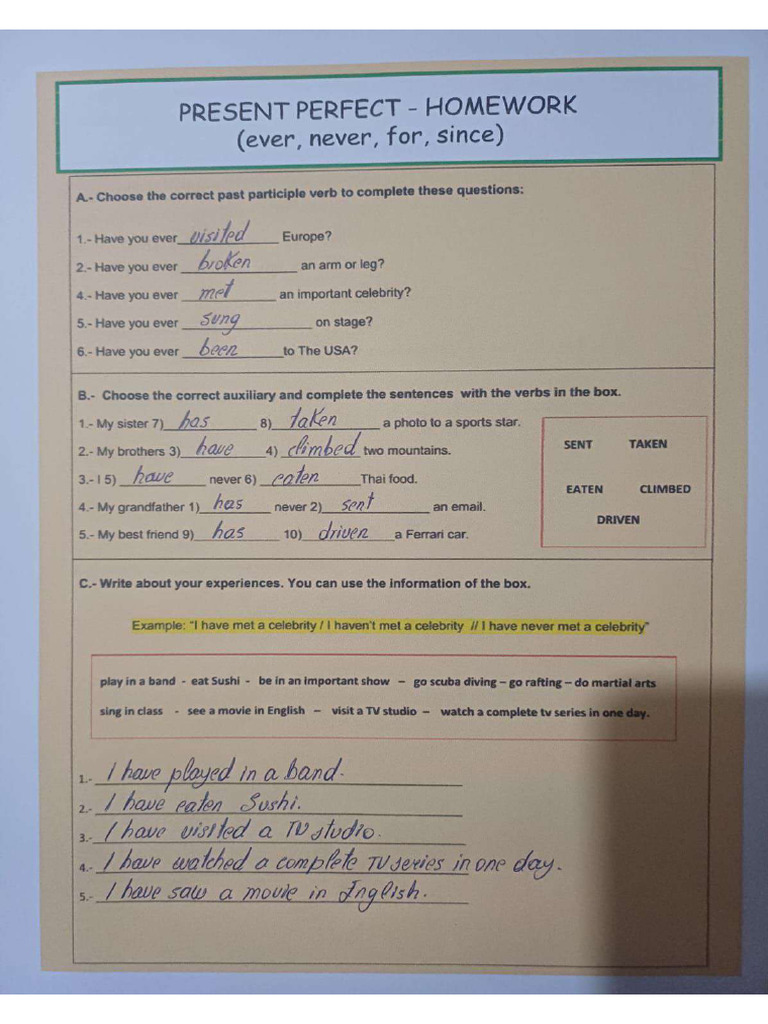 PRESENT PERFECT - HOMEWORK
(ever, never, for, since)
A.- Choose the correct past participle verb to complete these questions:
1.- Have you ever visited Europe?
2.- Have you ever broken an arm or leg?
4.- Have you ever met an important celebrity?
5.- Have you ever sung on stage?
6.- Have you ever been to The USA?
B.- Choose the correct auxiliary and complete the sentences with the verbs in the box.
1.- My sister 7) has 8) taken a photo to a sports star.
2.- My brothers 3) have 4) climbed two mountains.
3.- I 5) have never 6) eaten Thai food.
4.- My grandfather 1) has never 2) sent an email.
5.- My best friend 9) has 10) driven a Ferrari car.
SENT TAKEN
EATEN CLIMBED
DRIVEN
C.- Write about your experiences. You can use the information of the box.
Example: "I have met a celebrity / I haven't met a celebrity // I have never met a celebrity"
play in a band - eat Sushi - be in an important show – go scuba diving – go rafting – do martial arts
sing in class - see a movie in English – visit a TV studio – watch a complete tv series in one day.
1.- I have played in a band.
2.- I have eaten Sushi.
3.- I have visited a TV studio.
4.- I have watched a complete TV series in one day.
5.- I have saw a movie in English.